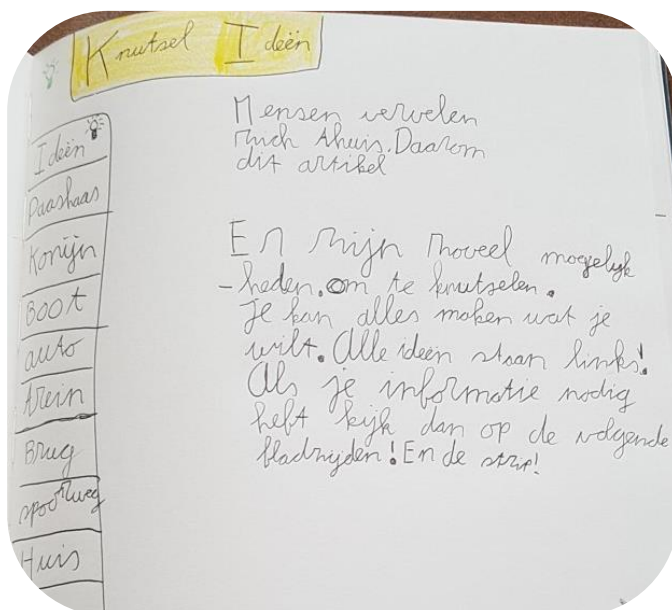 Knutsel Ideën
Ideën
Paashaas
Konijn
Boot
auto
trein
Brug
spoorweg
Huis
Mensen vervelen
zich thuis. Daarom
dit artikel
Er zijn zoveel mogelijk
-heden. om te knutselen.
Je kan alles maken wat je
wilt. Alle ideën staan links!
Als je informatie nodig
heft kijk dan op de volgende
bladzijden! En de strip!